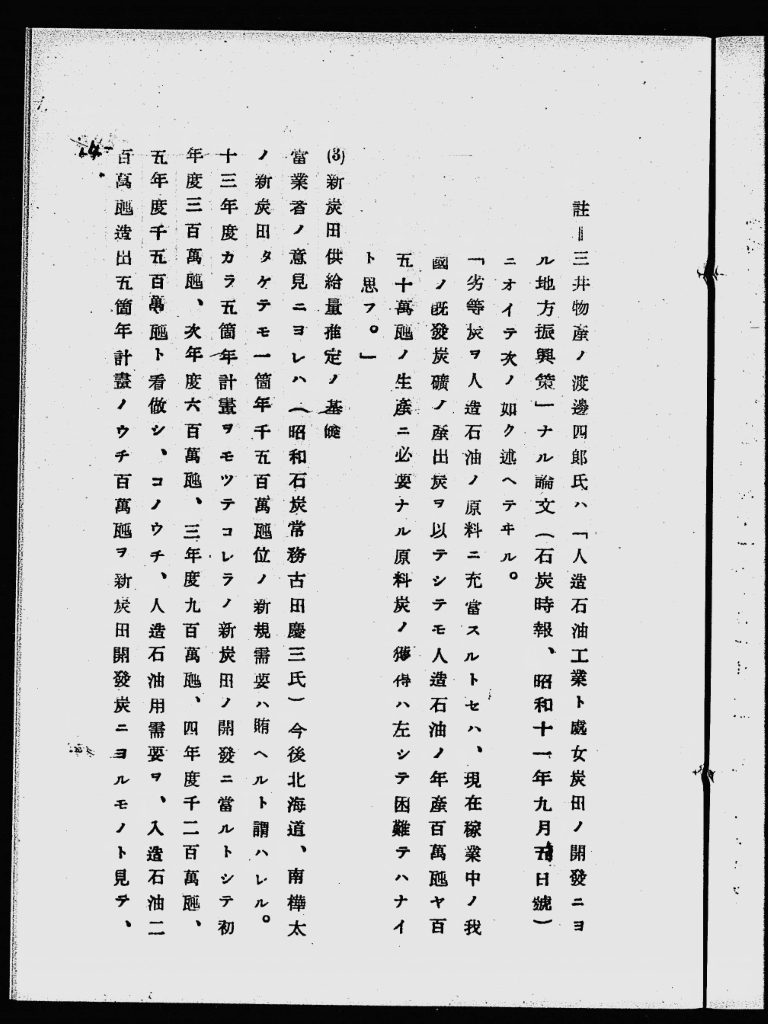 註＝三井物產ノ渡邊四郎氏ハ「人造石油工業ト處女炭田ノ開發ニヨ
ル地方振興策」ナル論文（石炭時報、昭和十一年九月五日號）
ニオイテ次ノ如ク述ヘテヰル。
「劣等炭ヲ人造石油ノ原料ニ充當スルトセハ、現在稼業中ノ我
國ノ既發炭礦ノ產出炭ヲ以テシテモ人造石油ノ年產百萬瓲ヤ百
五十萬瓲ノ生產ニ必要ナル原料炭ノ獲得ハ左シテ困難テハナイ
ト思フ。」
(3)新炭田供給量推定ノ基礎
當業者ノ意見ニヨレハ（昭和石炭常務古田慶三氏）今後北海道、南樺太
ノ新炭田タケテモ一箇年千五百萬瓲位ノ新規需要ハ賄ヘルト謂ハレル。
十三年度カラ五箇年計畫ヲモツテコレラノ新炭田ノ開發ニ當ルトシテ初
年度三百萬瓲、次年度六百萬瓲、三年度九百萬瓲、四年度千二百萬瓲、
五年度千五百萬瓲ト看做シ、コノウチ、人造石油用需要ヲ、人造石油二
百萬瓲造出五箇年計畫ノウチ百萬瓲ヲ新炭田開發炭ニヨルモノト見テ、